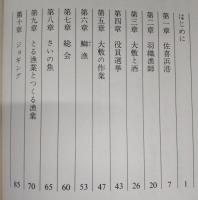 はじめに 1
第一章 佐喜浜港 7
第二章 羽織漁師 20
第三章 大敷と酒 26
第四章 役員選挙 43
第五章 大敷の作業 47
第六章 鰤漁 53
第七章 総会 60
第八章 さいの魚 65
第九章 とる漁業とつくる漁業 70
第十章 ジョギング 85